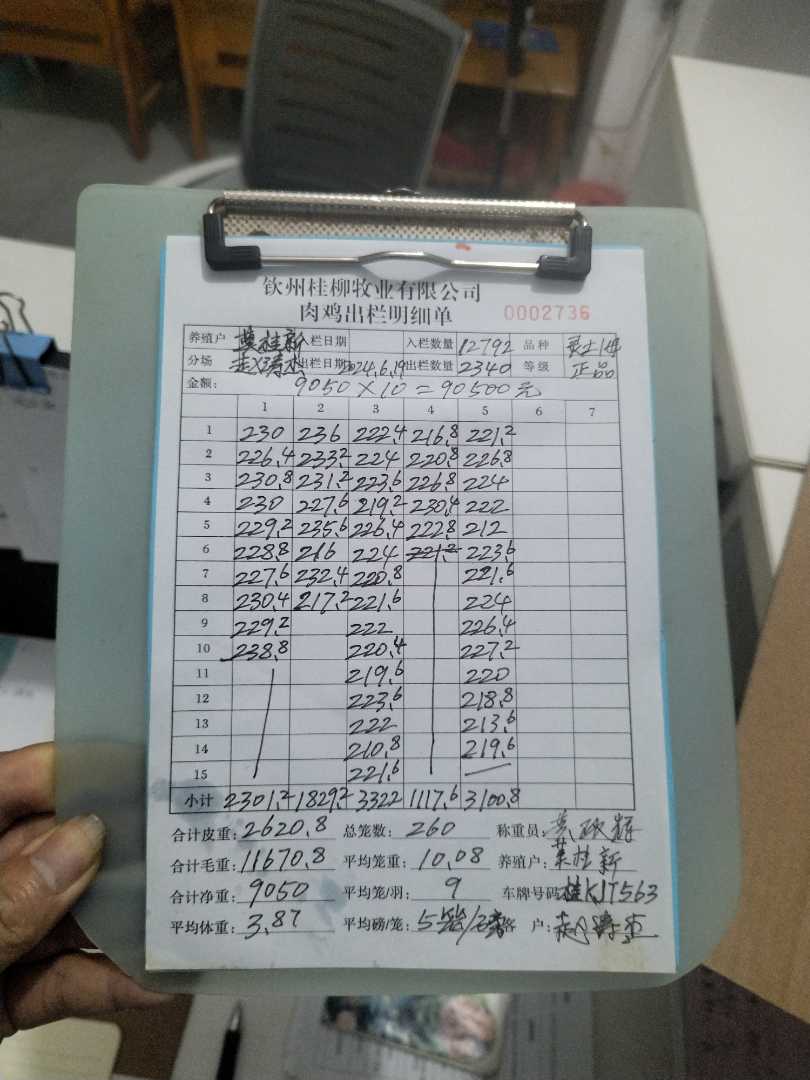 钦州桂柳牧业有限公司
肉鸡出栏明细单 0002736
养殖户 莫桂新 入栏日期 入栏数量 12792 品种
分场 出栏日期 2024.6.19 出栏数量 2340 等级 正品
金额: 9050×10=90500元
1 2 3 4 5 6 7
1 230 236 222.4 216.8 221.2
2 226.4 233.2 224 220.8 226.8
3 230.8 231.2 223.6 226.8 224
4 230 227.6 219.2 230.4 222
5 229.2 235.6 226.4 222.8 212
6 228.8 216 224 221.2 223.6
7 227.6 232.4 220.8 221.6
8 230.4 217.2 221.6 224
9 229.2 222 226.4
10 238.8 220.4 227.2
11 219.6 220
12 223.6 218.8
13 222 213.6
14 210.8 219.6
15 221.6
小计 2301.2 1829.2 3322 1117.6 3100.8
合计皮重: 2620.8 总笼数: 260 称重员:
合计毛重: 11670.8 平均笼重: 10.08 养殖户: 莫桂新
合计净重: 9050 平均笼/羽: 9 车牌号码 桂KJT563
平均体重: 3.87 平均磅/笼: 5笼/磅 客 户: